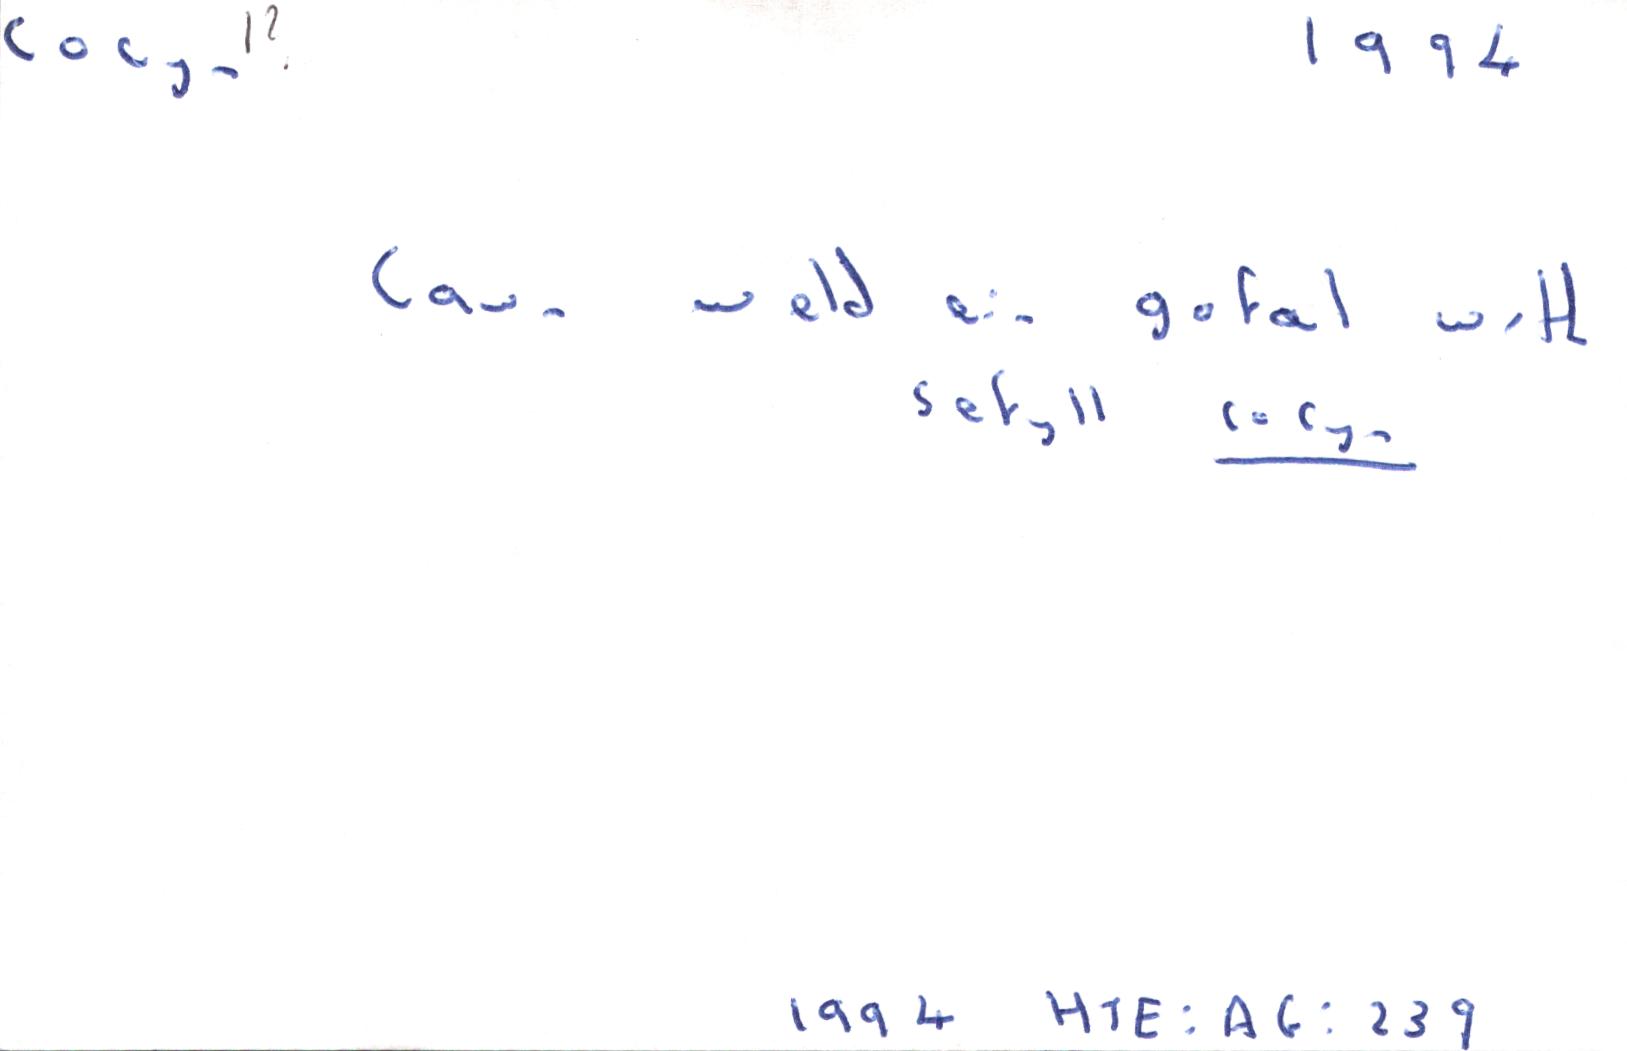 cocyn¹? 1994
Cawn weld ein gofal wrth
sefyll cocyn
1994 HTE: AG: 239